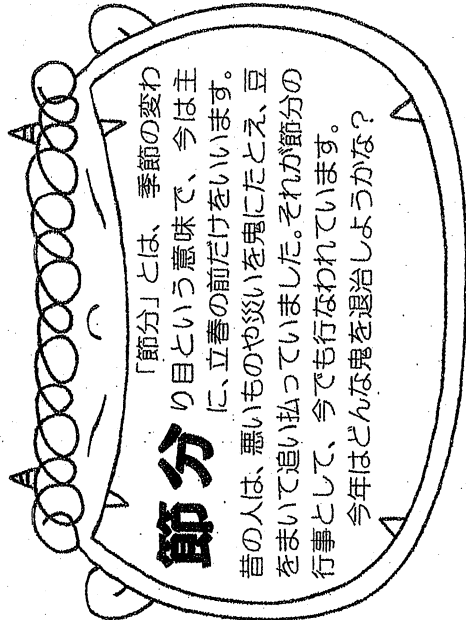 節分
「節分」とは、季節の変わ
り目という意味で、今は主
に、立春の前だけをいいます。
昔の人は、悪いものや災いを鬼にたとえ、豆
をまいて追い払っていました。それが節分の
行事として、今でも行なわれています。
今年はどんな鬼を退治しようかな?